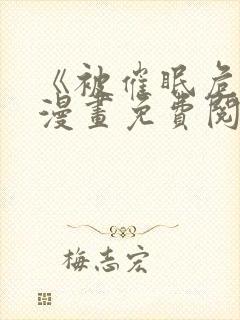 《被催眠危
漫畫免費閱
梅志宏